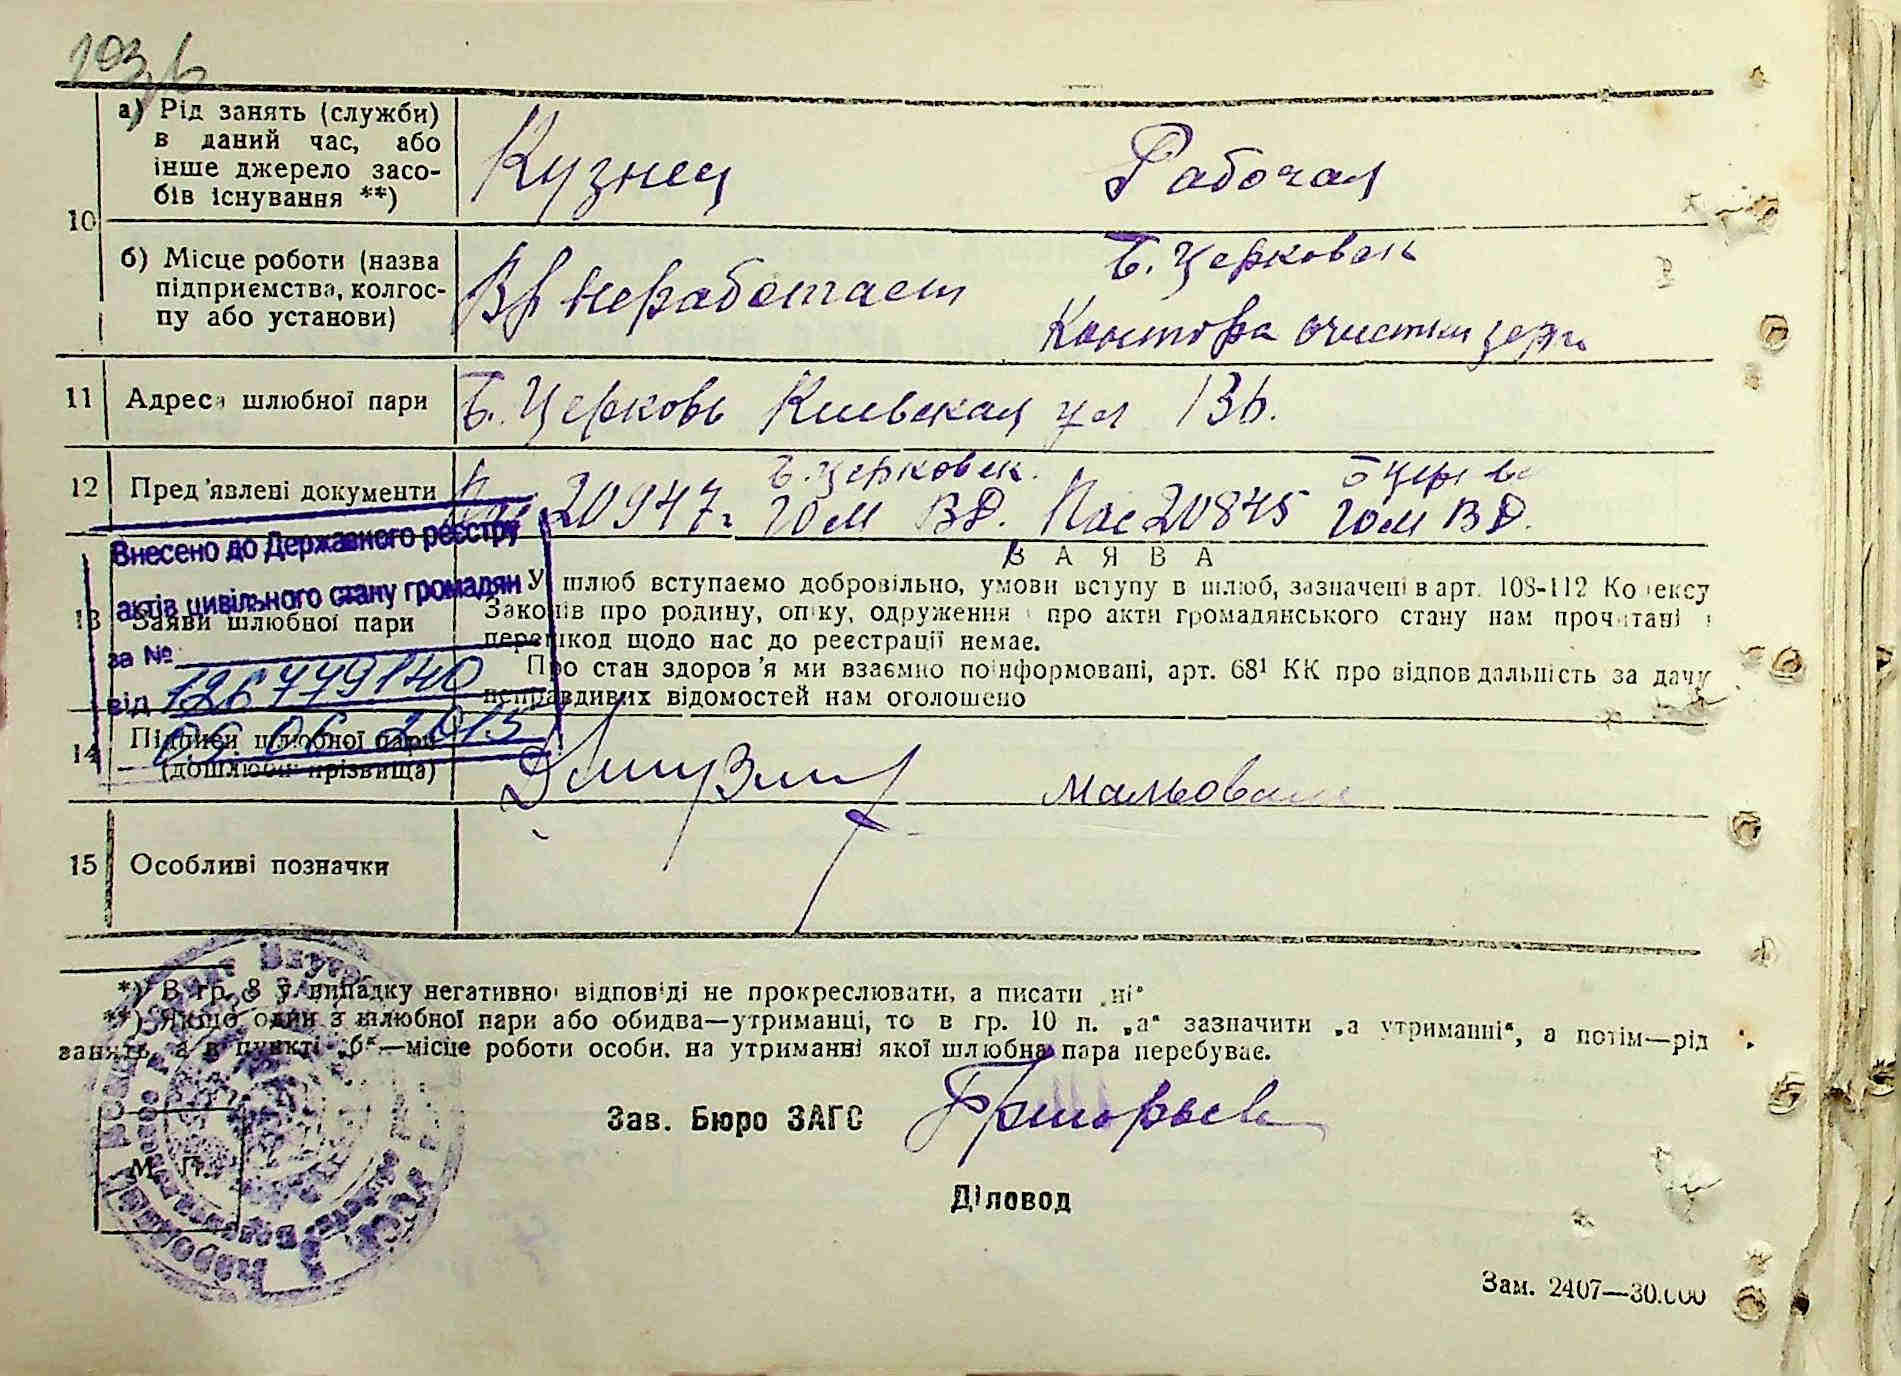 а) Рід занять (служби)
в даний час, або
інше джерело засо-
бів існування **)
Кузнец Рабочая
10
б) Місце роботи (назва
підприємства, колгос-
пу або установи)
Вр неработает
Б. Церковск
Контора очистки зерн
11 Адреса шлюбної пари
Б. Церковь Киевская ул 136.
12 Пред'явлені документи
Б. Церковск.
20947 ГОМ ВД. Пас 20845 ГОМ ВД.
Внесено до Державного реєстру
актів цивільного стану громадян
за №
від
05.06.2013
13 Заяви шлюбної пари
ЗАЯВА
У шлюб вступаємо добровільно, умови вступу в шлюб, зазначені в арт. 108-112 Кодексу
Законів про родину, опіку, одруження і про акти громадянського стану нам прочитані і
перешкод щодо нас до реєстрації немає.
Про стан здоров'я ми взаємно поінформовані, арт. 68¹ КК про відповідальність за дачу
неправдивих відомостей нам оголошено
14 Підписи шлюбної пари
(дошлюбні прізвища)
Мальована
15 Особливі позначки
*) В гр. 8 у випадку негативної відповіді не прокреслювати, а писати „ні"
**) Якщо один з шлюбної пари або обидва—утриманці, то в гр. 10 п. „а" зазначити „а утриманні", а потім—рід
занять, а в пункті „б"—місце роботи особи, на утриманні якої шлюбна пара перебуває.
Зав. Бюро ЗАГС
Григорьев
М. П.
Діловод
Зам. 2407—30.000